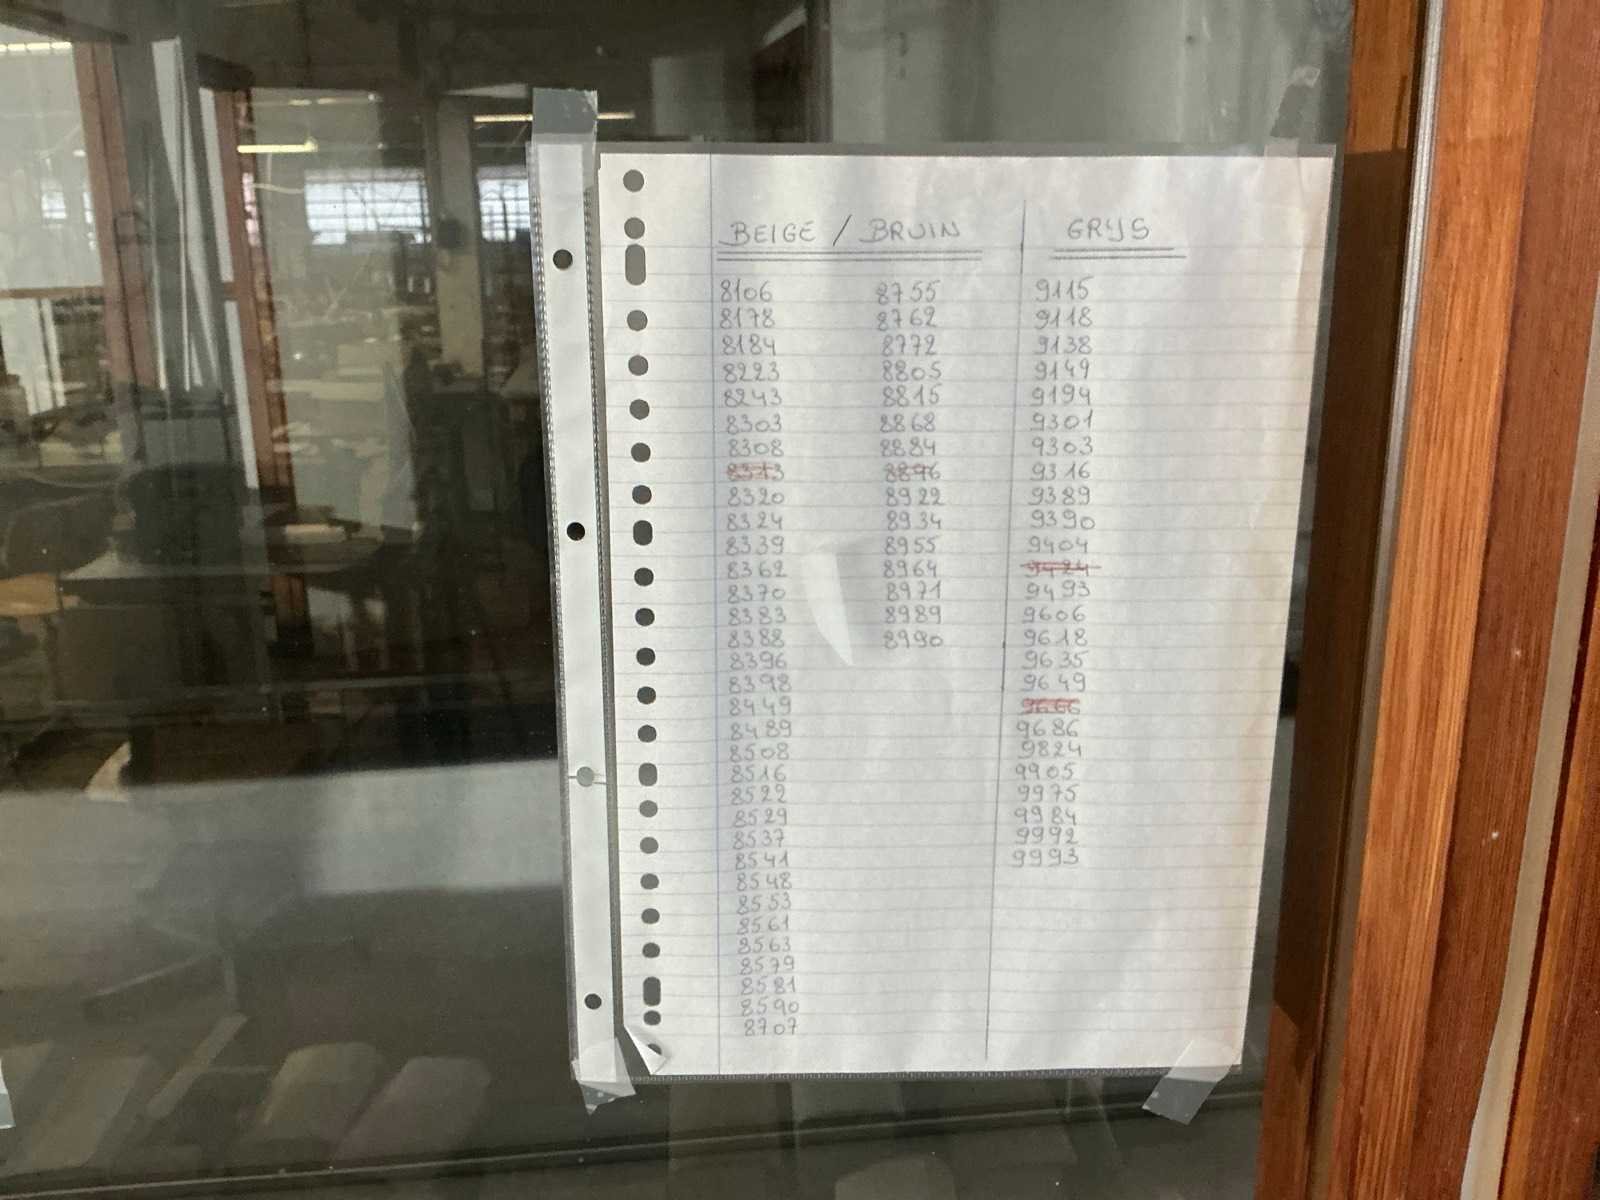 BEIGE / BRUIN GRIJS
8106 8755 9115
8178 8762 9118
8184 8772 9138
8223 8805 9149
8243 8815 9194
8303 8868 9301
8308 8884 9303
8313 8896 9316
8320 8922 9389
8324 8934 9390
8339 8955 9404
8362 8964 9424
8370 8971 9493
8383 8989 9606
8388 8990 9618
8396 9635
8398 9649
8449 9666
8489 9686
8508 9824
8516 9905
8522 9975
8529 9984
8537 9992
8541 9993
8548
8553
8561
8563
8579
8581
8590
8707